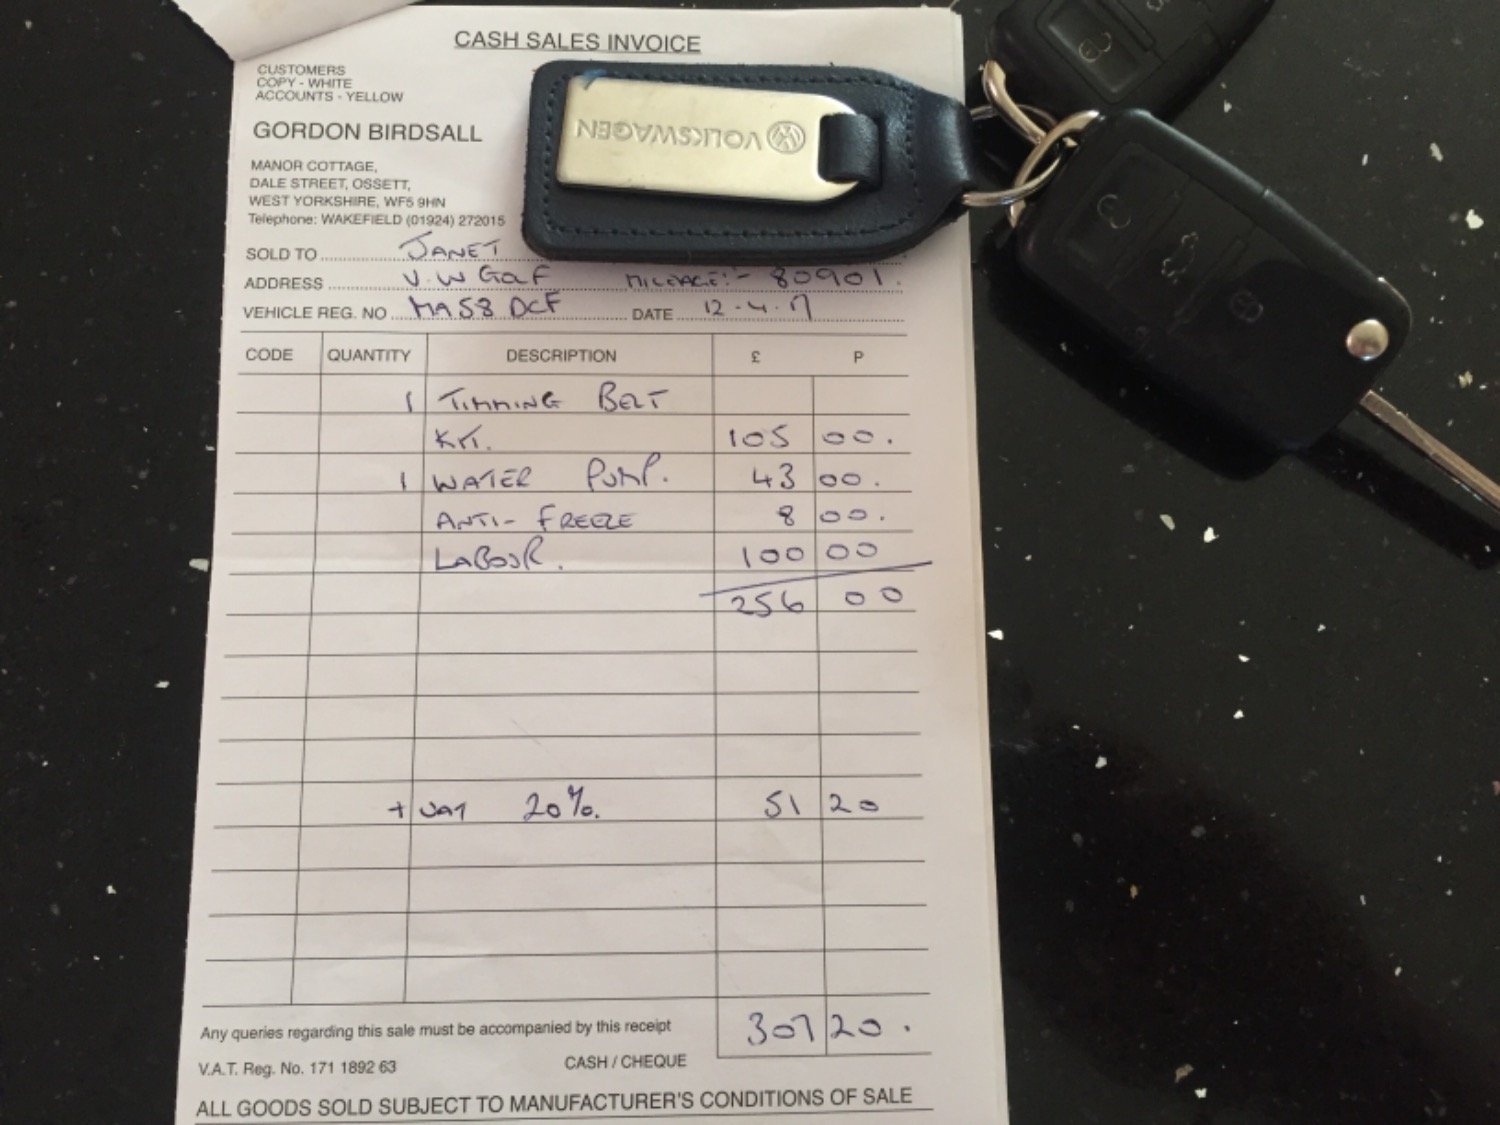 CASH SALES INVOICE
CUSTOMERS
COPY - WHITE
ACCOUNTS - YELLOW
GORDON BIRDSALL
MANOR COTTAGE,
DALE STREET, OSSETT,
WEST YORKSHIRE, WF5 9HN
Telephone: WAKEFIELD (01924) 272015
VOLKSWAGEN
SOLD TO JANET
ADDRESS V.W GOLF MILEAGE:- 80901.
VEHICLE REG. NO MA58 DCF DATE 12-4-17
CODE QUANTITY DESCRIPTION £ P
1 TIMMING BELT
KIT. 105 00.
1 WATER PUMP. 43 00.
ANTI-FREEZE 8 00.
LABOUR. 100 00
256 00
+ VAT 20%. 51 20
Any queries regarding this sale must be accompanied by this receipt 307 20.
V.A.T. Reg. No. 171 1892 63 CASH / CHEQUE
ALL GOODS SOLD SUBJECT TO MANUFACTURER'S CONDITIONS OF SALE